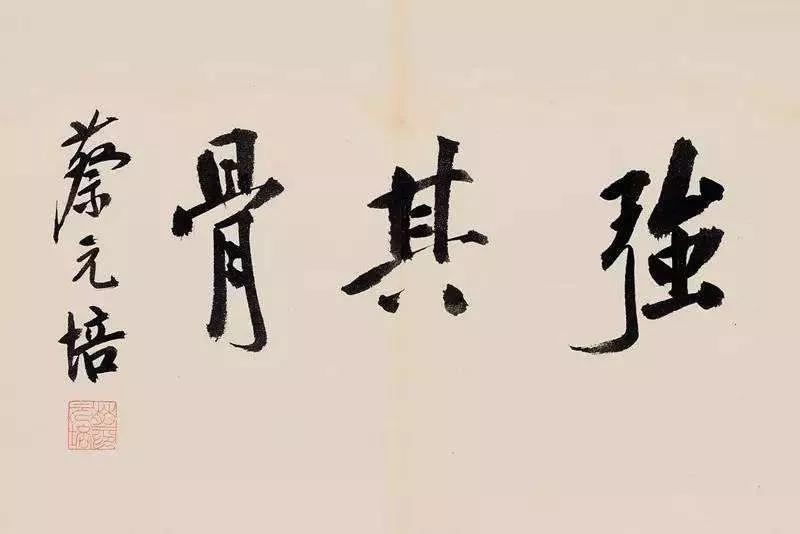 強其骨
蔡元培